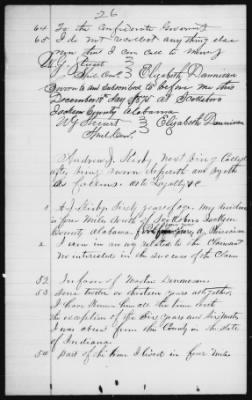 26
64 To the Confederate Government
65 I do not recollect any thing else
now that I can call to memory
W G Stuart
Spcl Com. Elizabeth Dannean
Sworn to and Subscribed to before me this
December day 1875 at Scottsboro
Jackson County Alabama
W G Stuart Elizabeth Dannean
Spcl Com.
Andrew J. Kirby, next being Called
after being Sworn deposeth and sayeth
as follows. as to Loyalty &c
1 A J Kirby Sixty years of age. My residence
is four Miles South of Scottsboro Jackson
County Alabama, a Physician
2 I am in no way related to the Claimant
No interested in the success of the Claim
52 In favor of Martin Dannean
53 Some twelve or thirteen years altogether
I have Known him all the time with
the exception of the five years and six Months
I was absent from this County in the State
of Indiana.
54 part of the time I lived in four miles